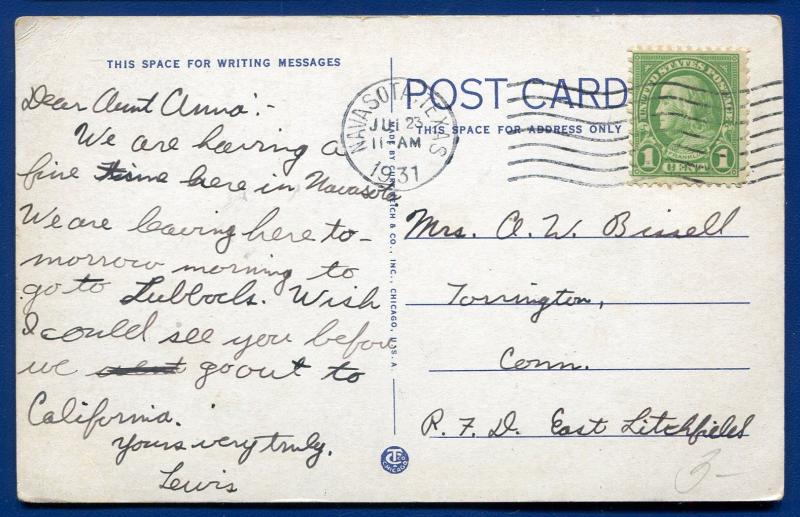 THIS SPACE FOR WRITING MESSAGES
Dear Aunt Anna:-
We are having a
fine time here in Navasota.
We are leaving here to-
morrow morning to
go to Lubbock. Wish
I could see you before
we go out to
California.
Yours very truly,
Lewis
POST CARD
THIS SPACE FOR ADDRESS ONLY
NAVASOTA, TEXAS
JUL 23
11 AM
1931
UNITED STATES POSTAGE
FRANKLIN
1 CENT 1
MADE BY CURT TEICH & CO., INC., CHICAGO, U.S.A.
Mrs. A. W. Bissell
Torrington,
Conn.
R. F. D. East Litchfield
CHICAGO
3-